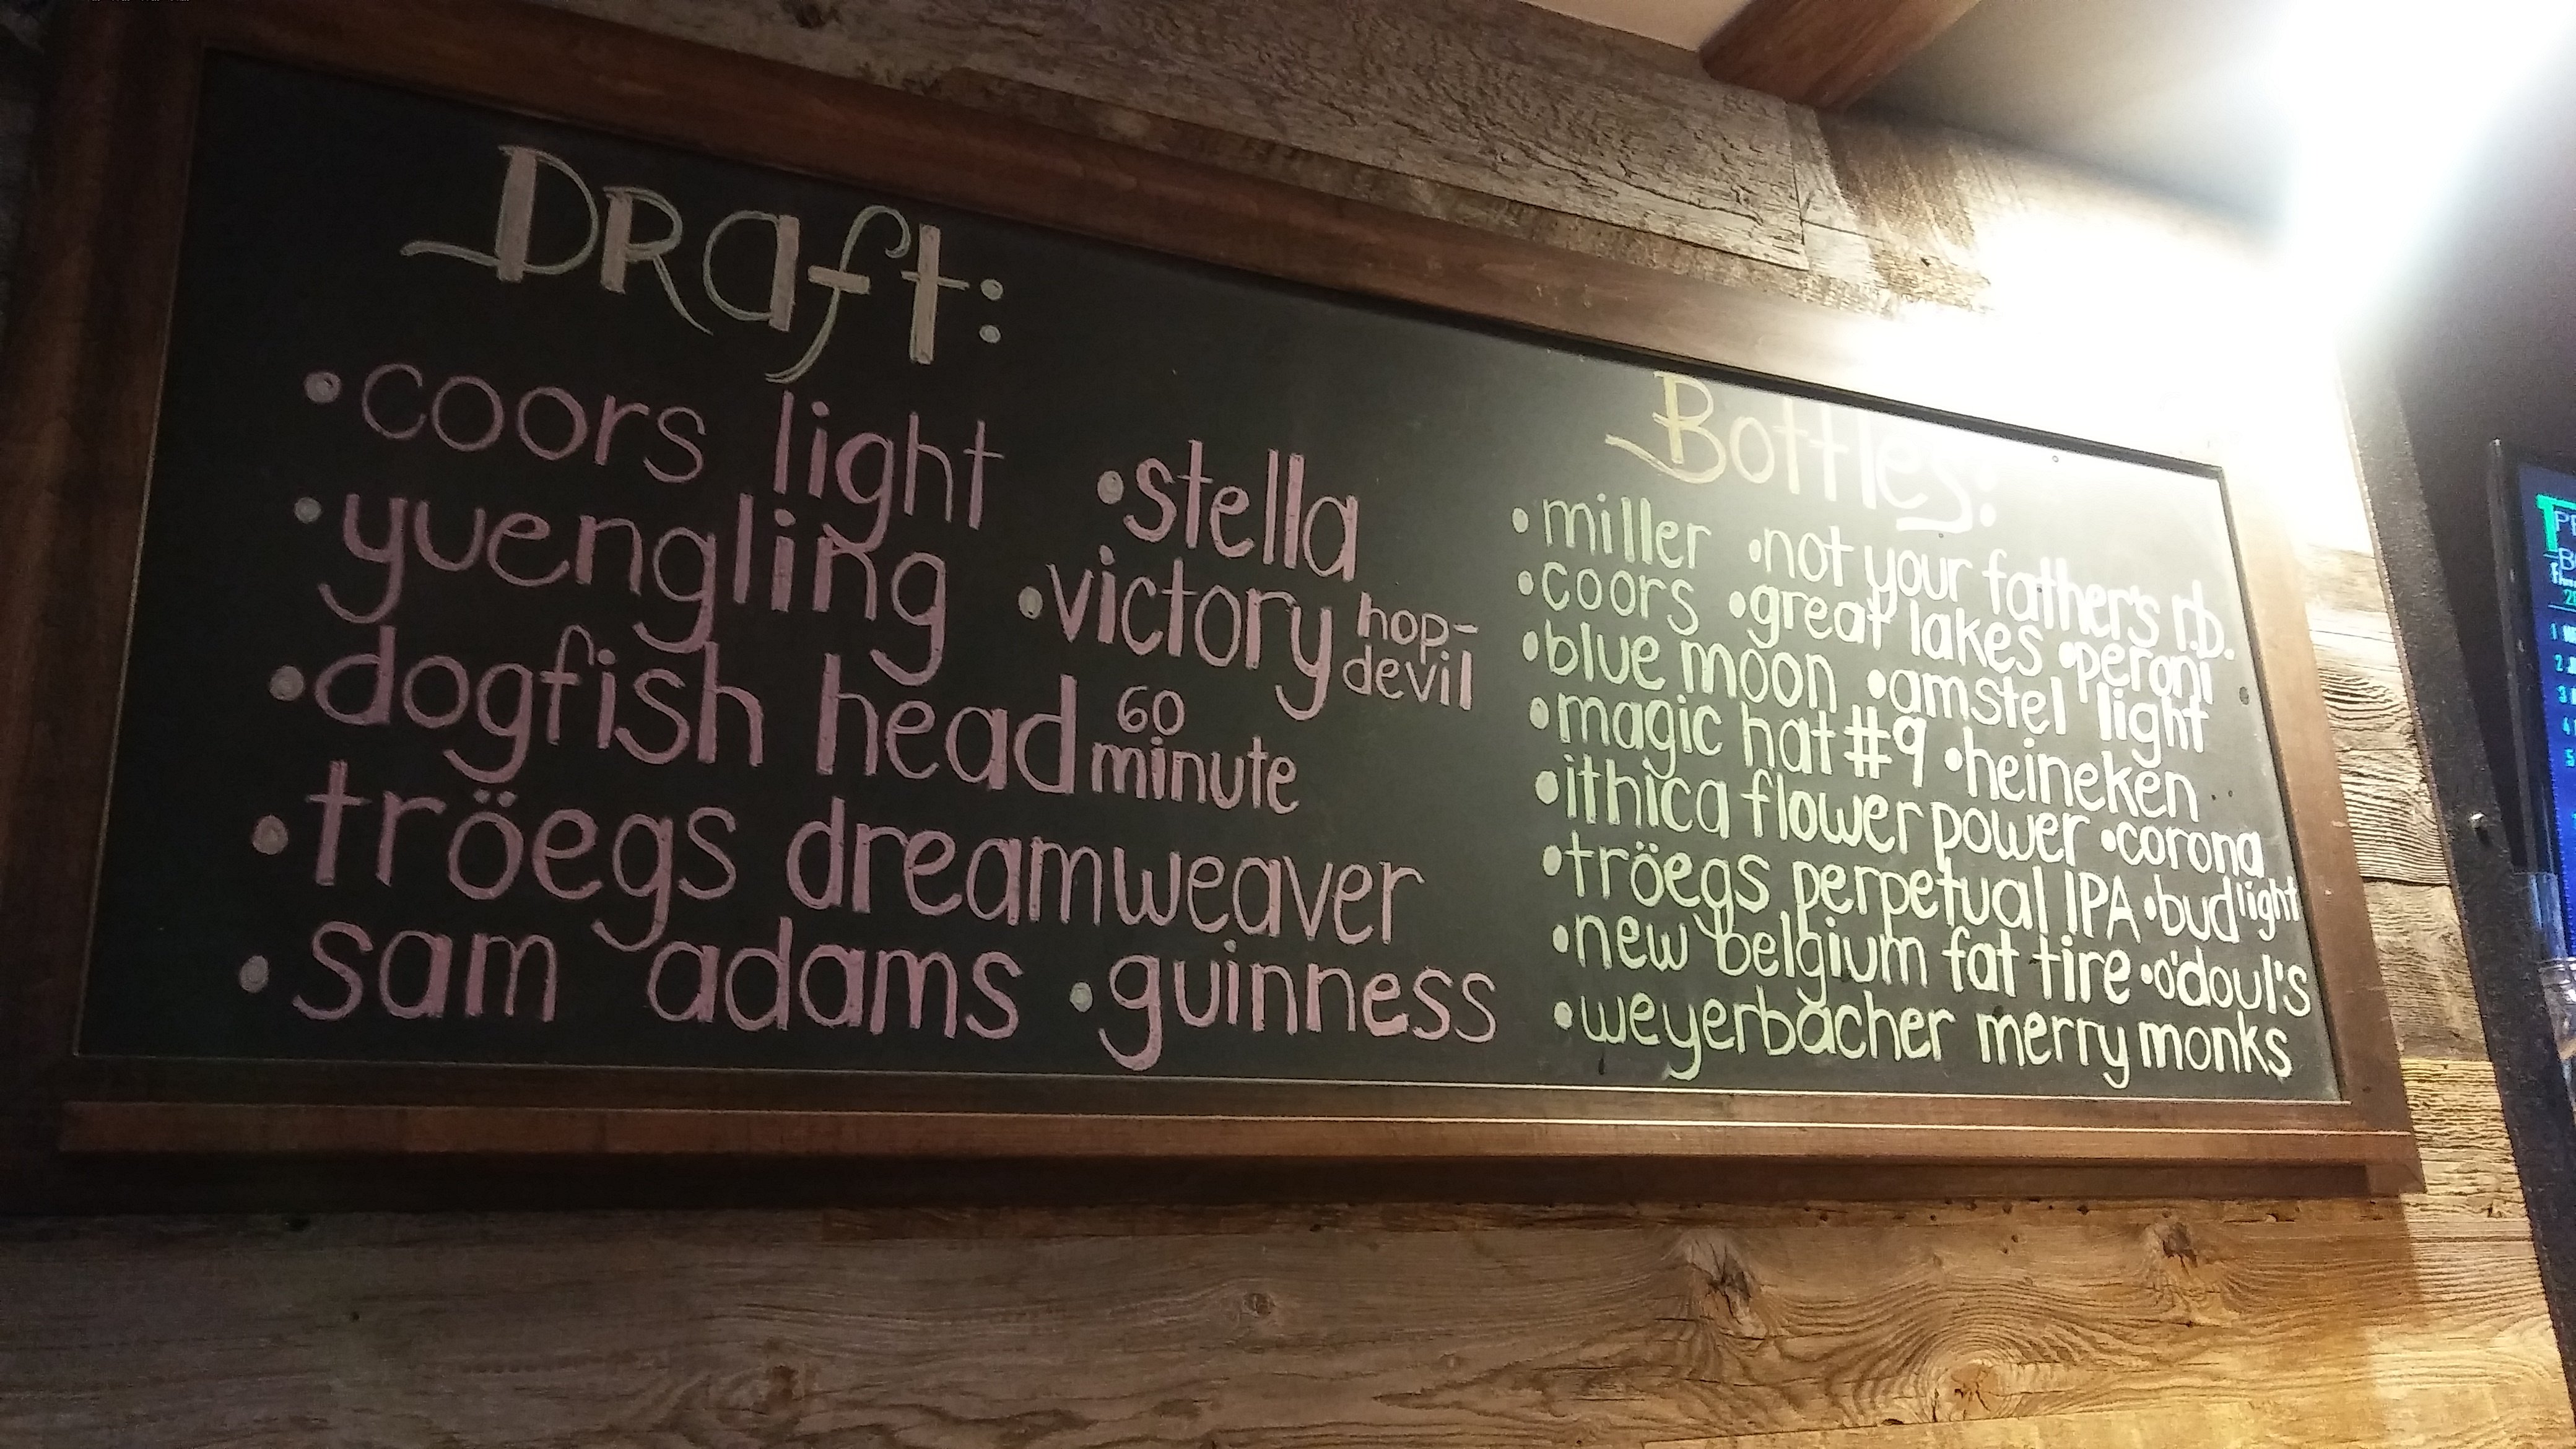 Draft:
•coors light •stella
•yuengling •victory hop-devil
•dogfish head 60 minute
•tröegs dreamweaver
•sam adams •guinness
Bottles:
•miller •not your father's r.b.
•coors •great lakes •peroni
•blue moon •amstel light
•magic hat #9 •heineken
•ithica flower power •corona
•tröegs perpetual IPA •bud light
•new belgium fat tire •o'doul's
•weyerbacher merry monks